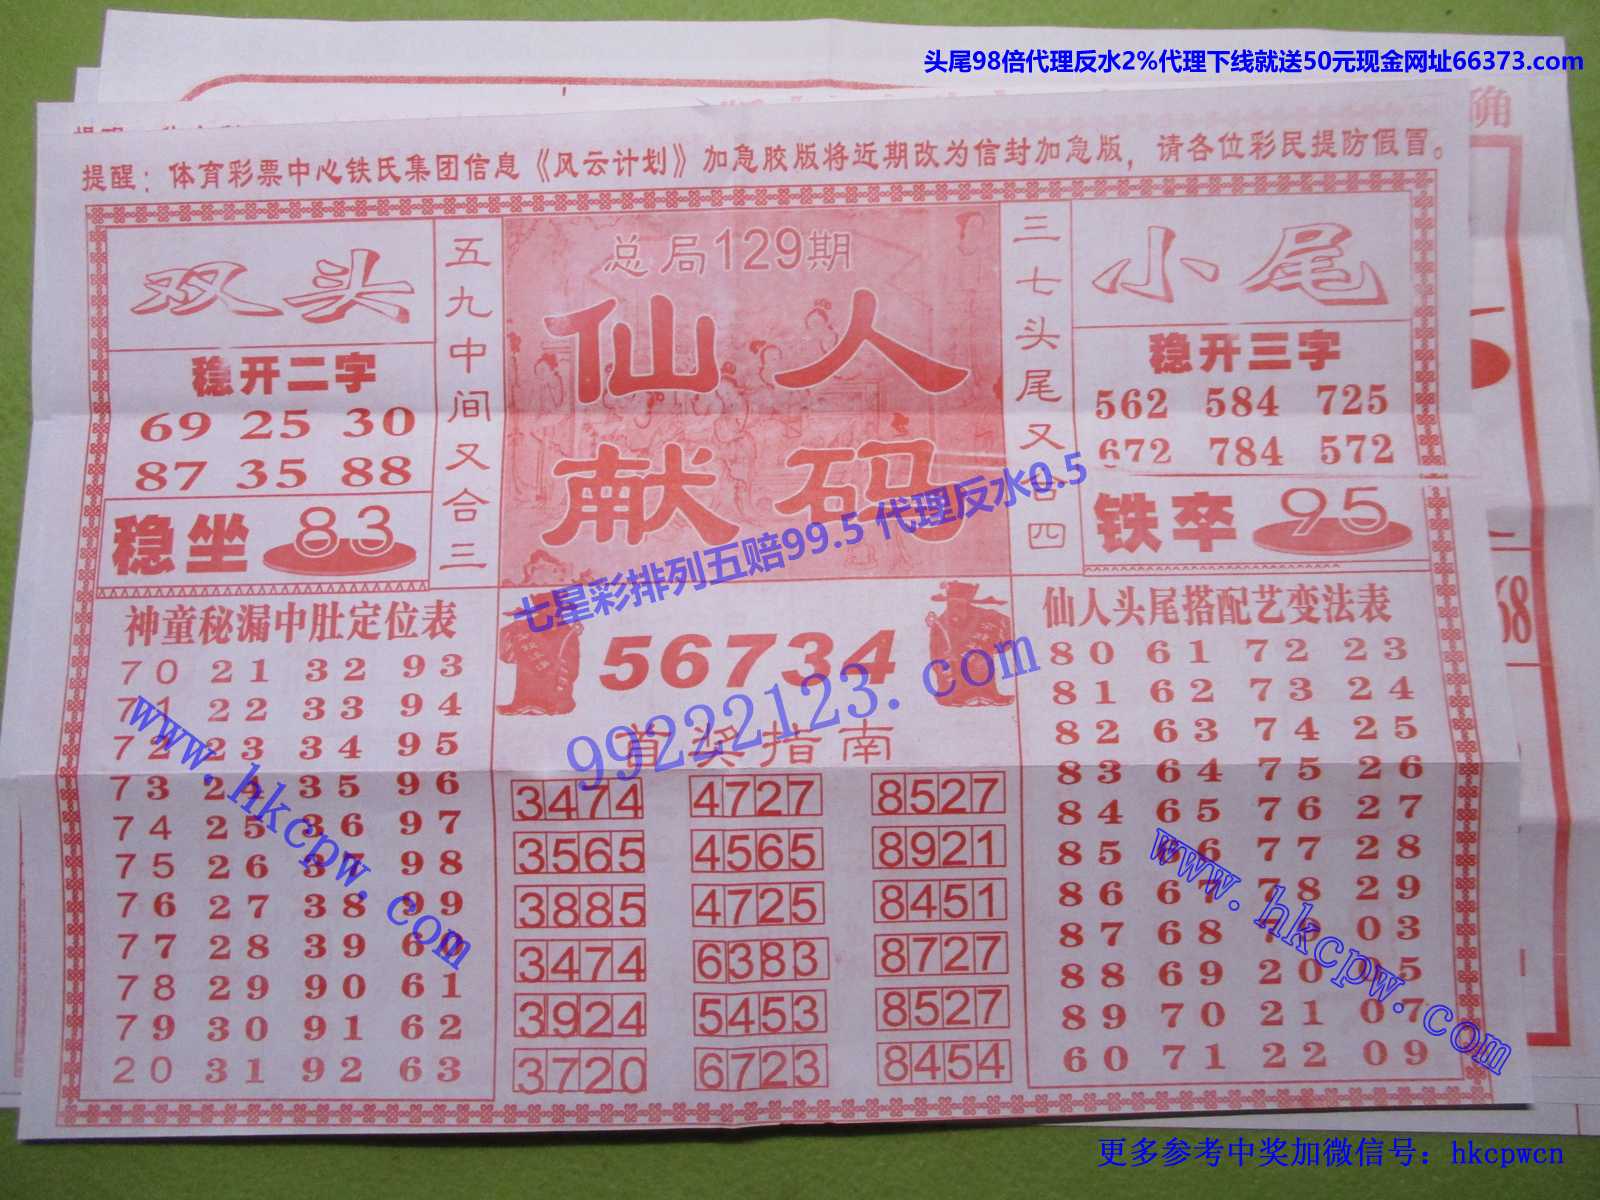 头尾98倍代理反水2%代理下线就送50元现金网址66373.com
确
提醒：体育彩票中心铁氏集团信息《风云计划》加急胶版将近期改为信封加急版，请各位彩民提防假冒。
双头
稳开二字
69 25 30
87 35 88
稳坐 83
五九中间又合三
总局129期
仙人
献码
三七头尾又合四
小尾
稳开三字
562 584 725
672 784 572
铁卒 95
七星彩排列五赔99.5 代理反水0.5
99222123.com
神童秘漏中肚定位表
70 21 32 93
71 22 33 94
72 23 34 95
73 24 35 96
74 25 36 97
75 26 37 98
76 27 38 99
77 28 39 60
78 29 90 61
79 30 91 62
20 31 92 63
www.hkcpw.com
56734
首奖指南
3474 4727 8527
3565 4565 8921
3885 4725 8451
3474 6383 8727
3924 5453 8527
3720 6723 8454
仙人头尾搭配艺变法表
80 61 72 23
81 62 73 24
82 63 74 25
83 64 75 26
84 65 76 27
85 66 77 28
86 67 78 29
87 68 79 03
88 69 20 05
89 70 21 07
60 71 22 09
www.hkcpw.com
68
更多参考中奖加微信号：hkcpwcn